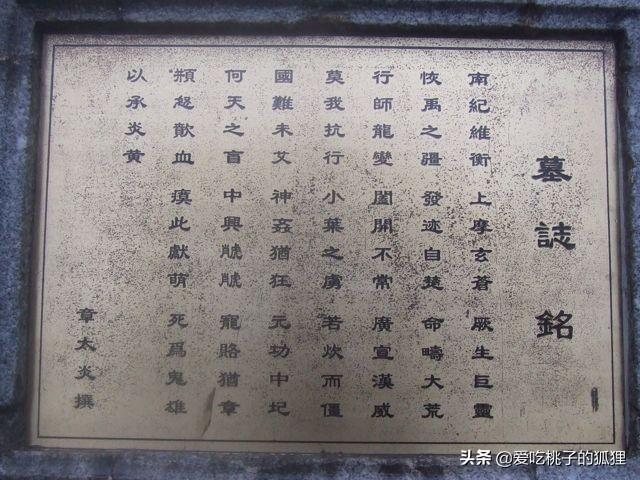 墓誌銘
南紀維衡 上摩玄蒼 厥生巨靈
恢禹之疆 發迹自楚 命疇大荒
行師龍變 闔開不常 廣宣漢威
莫我抗行 小葉之虜 若炊而僵
國難未艾 神姦猶狂 元功中圮
何天之盲 中興 寵賂猶章
歃血 瘼此獻萌 死爲鬼雄
以承炎黄
章太炎撰
头条 @爱吃桃子的狐狸